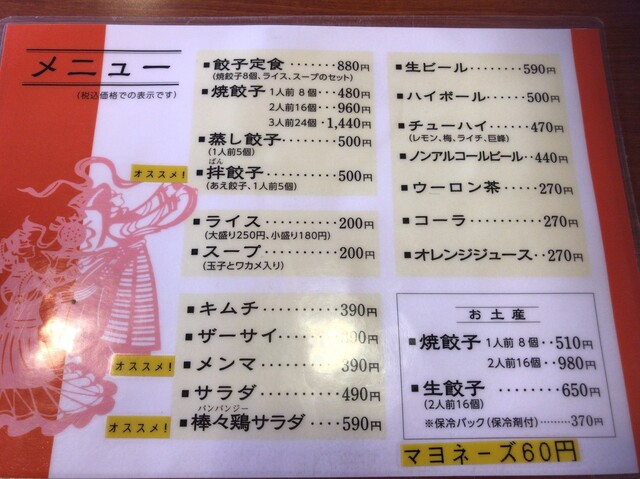 メニュー
(税込価格での表示です)
■餃子定食・・・・・・・880円
(焼餃子8個、ライス、スープのセット)
■焼餃子 1人前 8個・・・480円
2人前16個・・・960円
3人前24個・1,440円
■蒸し餃子・・・・・・500円
(1人前5個)
オススメ!
ばん
■拌餃子・・・・・・・・500円
(あえ餃子、1人前5個)
■ライス・・・・・・・・200円
(大盛り250円、小盛り180円)
■スープ・・・・・・・・200円
(玉子とワカメ入り)
■キムチ・・・・・・・390円
■ザーサイ・・・・・ 00円
オススメ!
■メンマ・・・・・・・390円
■サラダ・・・・・・・490円
オススメ!
バンバンジー
■棒々鶏サラダ・・・・590円
■生ビール・・・・・・・590円
■ハイボール・・・・・・500円
■チューハイ・・・・・470円
(レモン、梅、ライチ、巨峰)
■ノンアルコールビール・・440円
■ウーロン茶・・・・270円
■コーラ・・・・・・・・・270円
■オレンジジュース・・270円
お土産
■焼餃子 1人前 8個・・510円
2人前16個・・980円
■生餃子・・・・・・・・650円
(2人前16個)
※保冷パック(保冷剤付)・・・・・・・・・370円
マヨネーズ60円